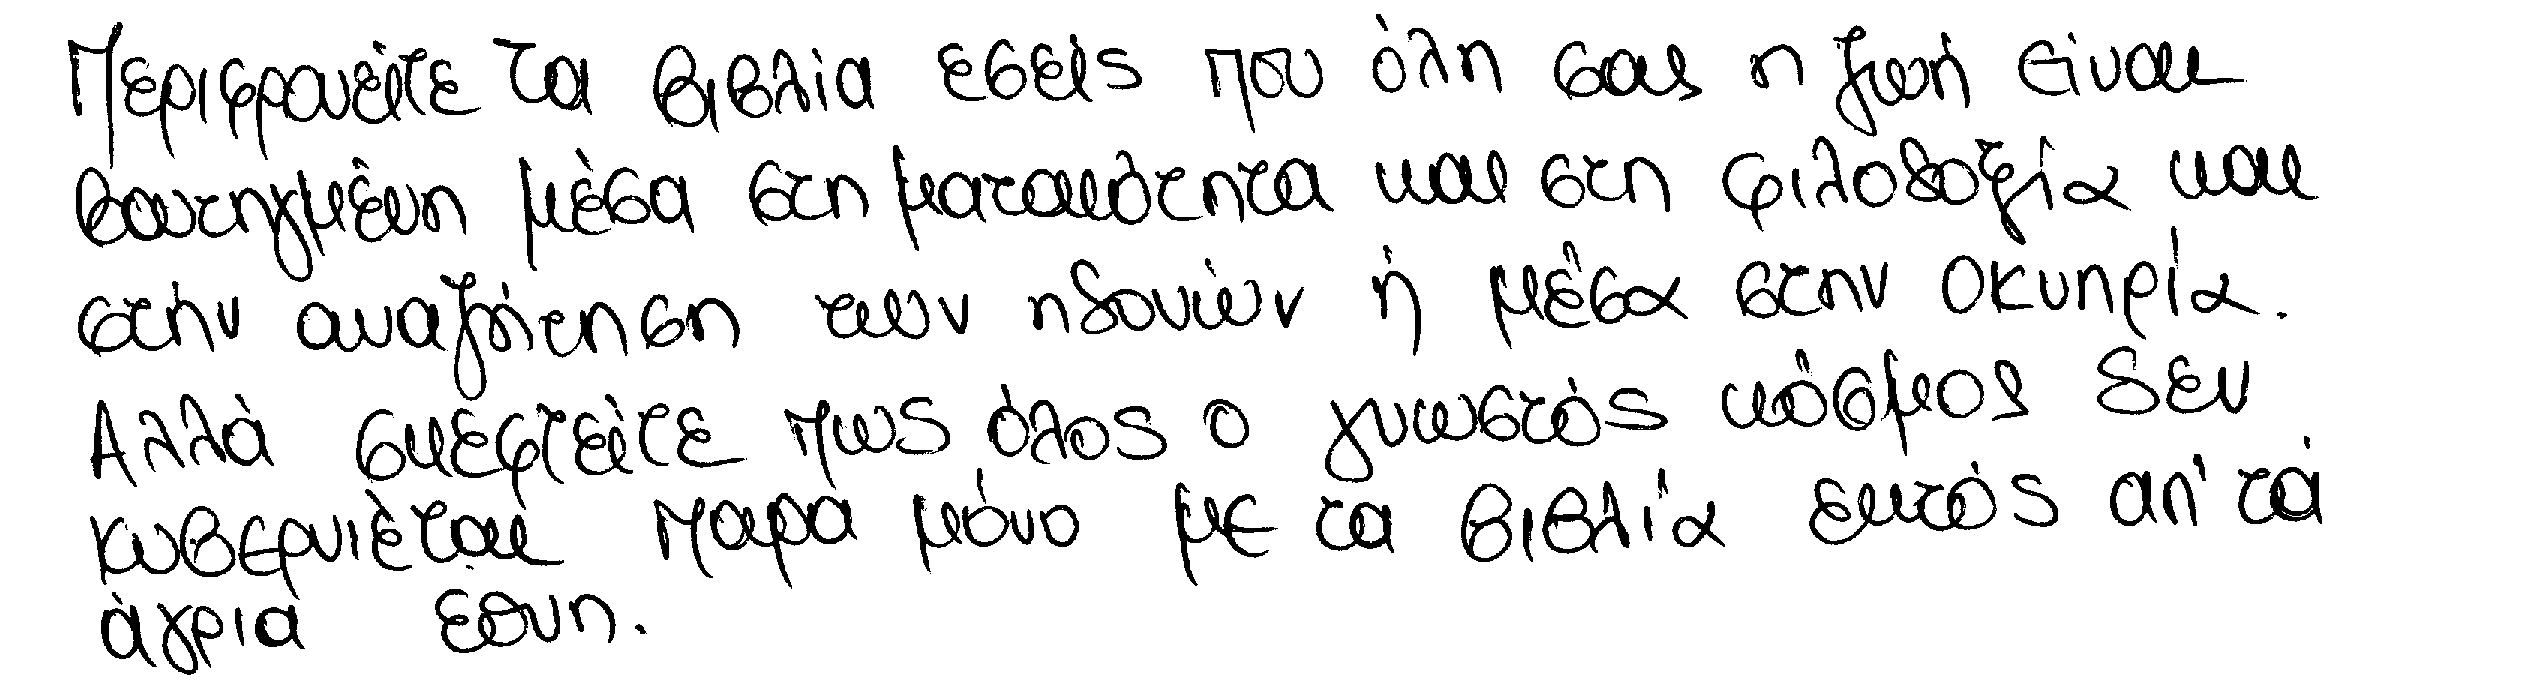 Περιφρονείτε τα βιβλία εσείς που όλη σας η ζωή είναι
βουτηγμένη μέσα στη ματαιότητα και στη φιλοδοξία και
στήν αναζήτηση των ηδονών ή μέσα στην οκνηρία.
Αλλά σκεφτείτε πως όλος ο γνωστός κόσμος δεν
κυβερνιέται παρά μόνο με τα βιβλία εκτός απ' τά
άγρια έθνη.